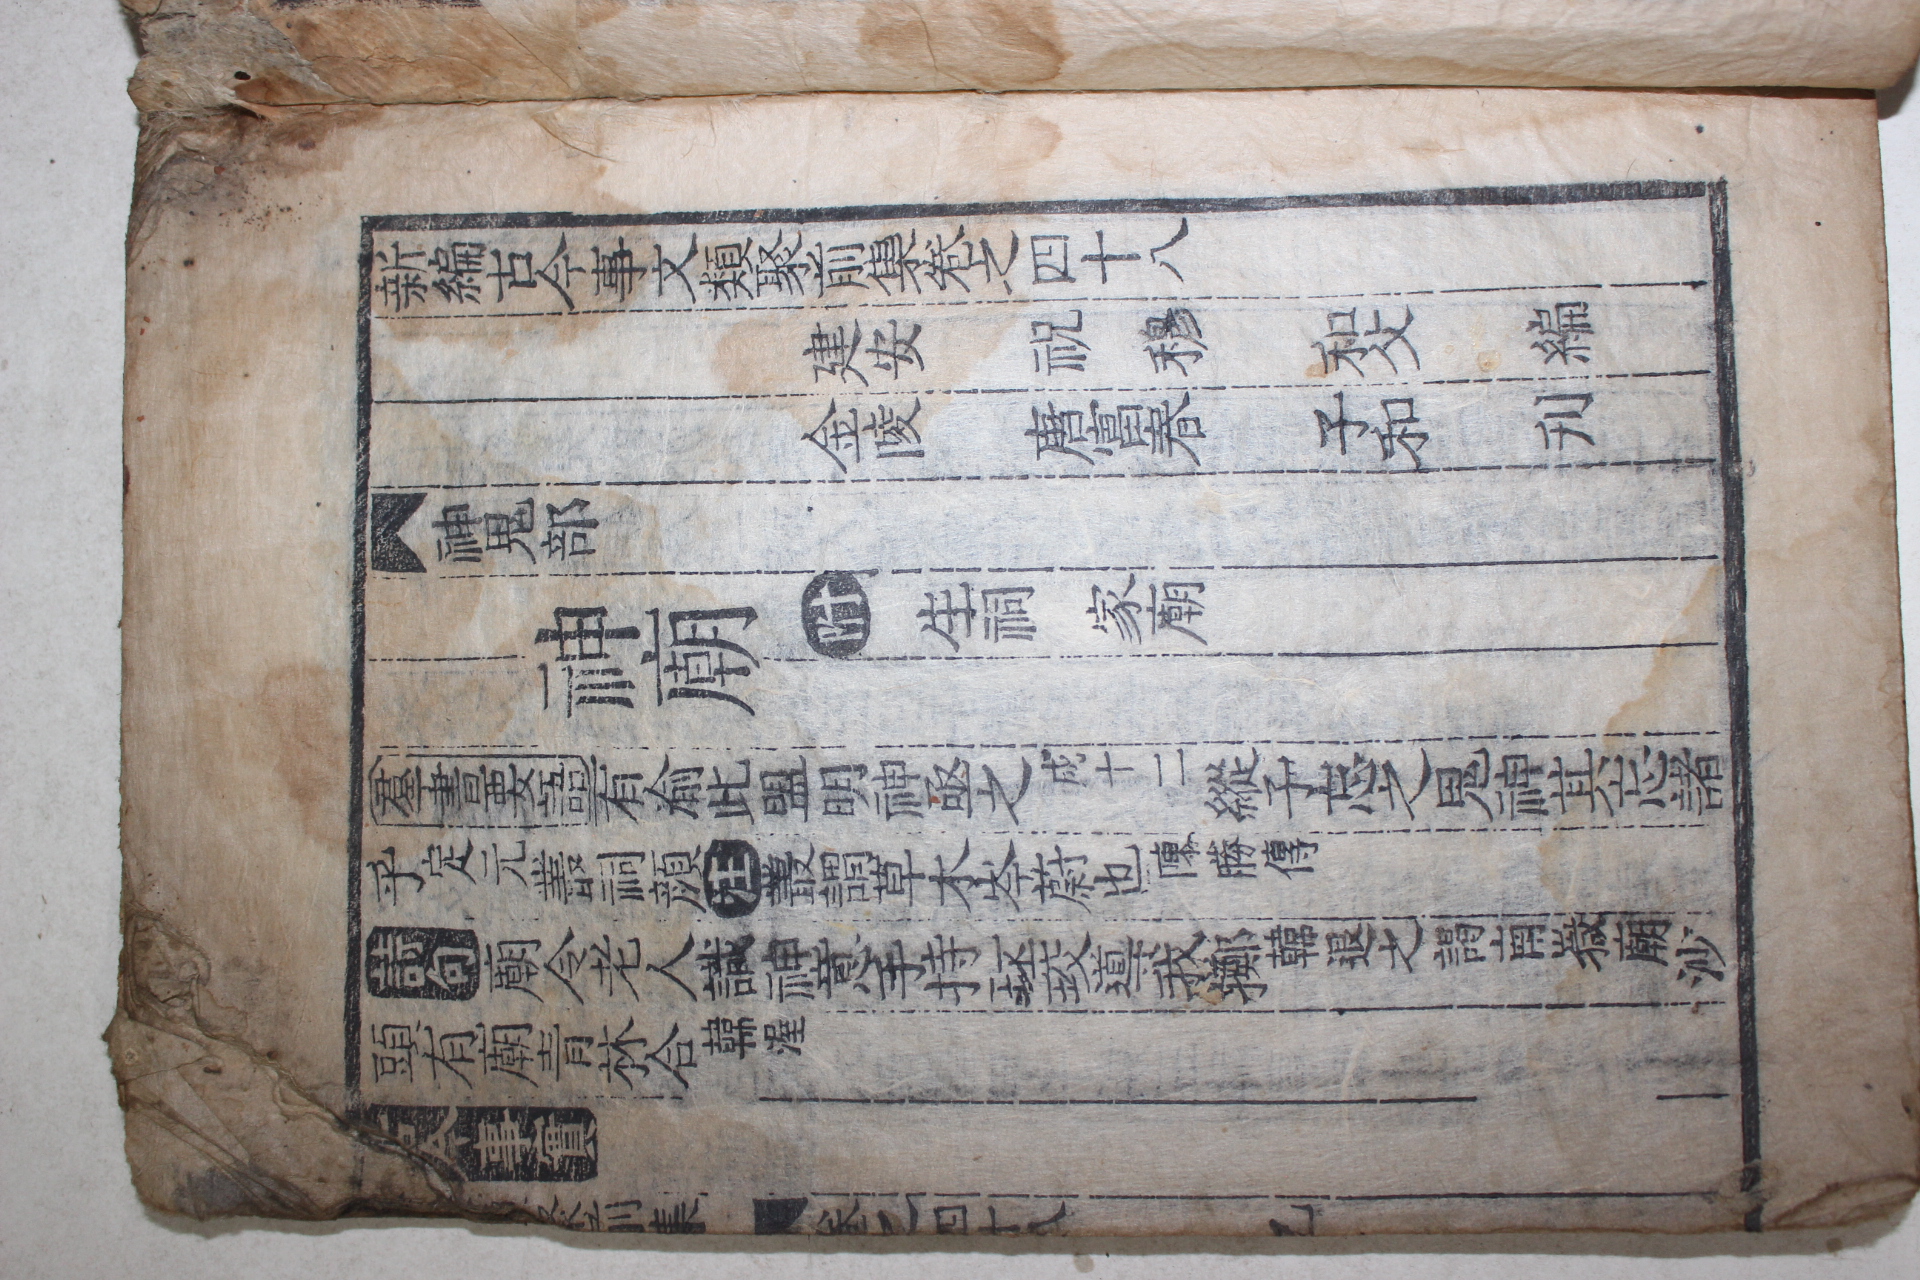 新編古今事文類聚前集卷之四十八
建安 祝 穆 和父 編
金陵 唐富春 子和 刊
神鬼部
神廟 附 生祠 家廟
羣書要語 有渝此盟明神殛之 成十二 縱子忘之鬼神其忘諸
乎 定元 叢祠 顏註 叢謂草木岑蔚也 陳勝傳
詩句 廟令老人識神意 手持盃珓導我擲 韓退之謁南嶽廟 沙
頭有廟青林合 韓渥
古今事實
聚前集 卷之四十八